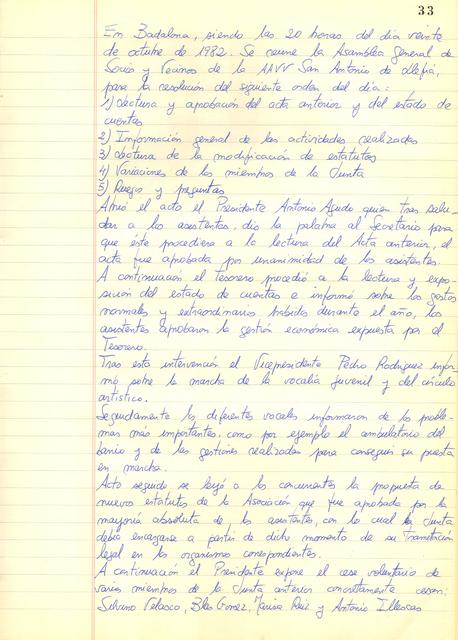 33
En Badalona, siendo las 20 horas del día veinte
de octubre de 1982. Se reune la Asamblea General de
Socios y Vecinos de la AAVV San Antonio de Llefià,
para la resolución del siguiente orden del día:
1) Lectura y aprobación del acta anterior y del estado de
cuentas
2) Información general de las actividades realizadas
3) Lectura de la modificación de estatutos
4) Variaciones de los miembros de la Junta
5) Ruegos y preguntas
Abrió el acto el Presidente Antonio Agudo quien tras salu-
dar a los asistentes, dio la palabra al Secretario para
que éste procediera a la lectura del Acta anterior, el
acta fue aprobada por unanimidad de los asistentes.
A continuación el tesorero procedió a la lectura y expo-
sición del estado de cuentas e informó sobre los gastos
normales y extraordinarios habidos durante el año, los
asistentes aprobaron la gestión económica expuesta por el
Tesorero.
Tras esta intervención el Vicepresidente Pedro Rodriguez infor-
mó sobre la marcha de la vocalía juvenil y del círculo
artístico.
Seguidamente los diferentes vocales informaron de los proble-
mas más importantes, como por ejemplo el ambulatorio del
barrio y de las gestiones realizadas para conseguir su puesta
en marcha.
Acto seguido se leyó a los concurrentes la propuesta de
nuevos estatutos de la Asociación que fue aprobada por la
mayoría absoluta de los asistentes, con lo cual la Junta
debía encargarse a partir de dicho momento de su tramitación
legal en los organismos correspondientes.
A continuación el Presidente expone el cese voluntario de
varios miembros de la Junta anterior concretamente cesan:
Silvino Velasco, Blas Gomez, Marisa Ruiz y Antonio Illescas